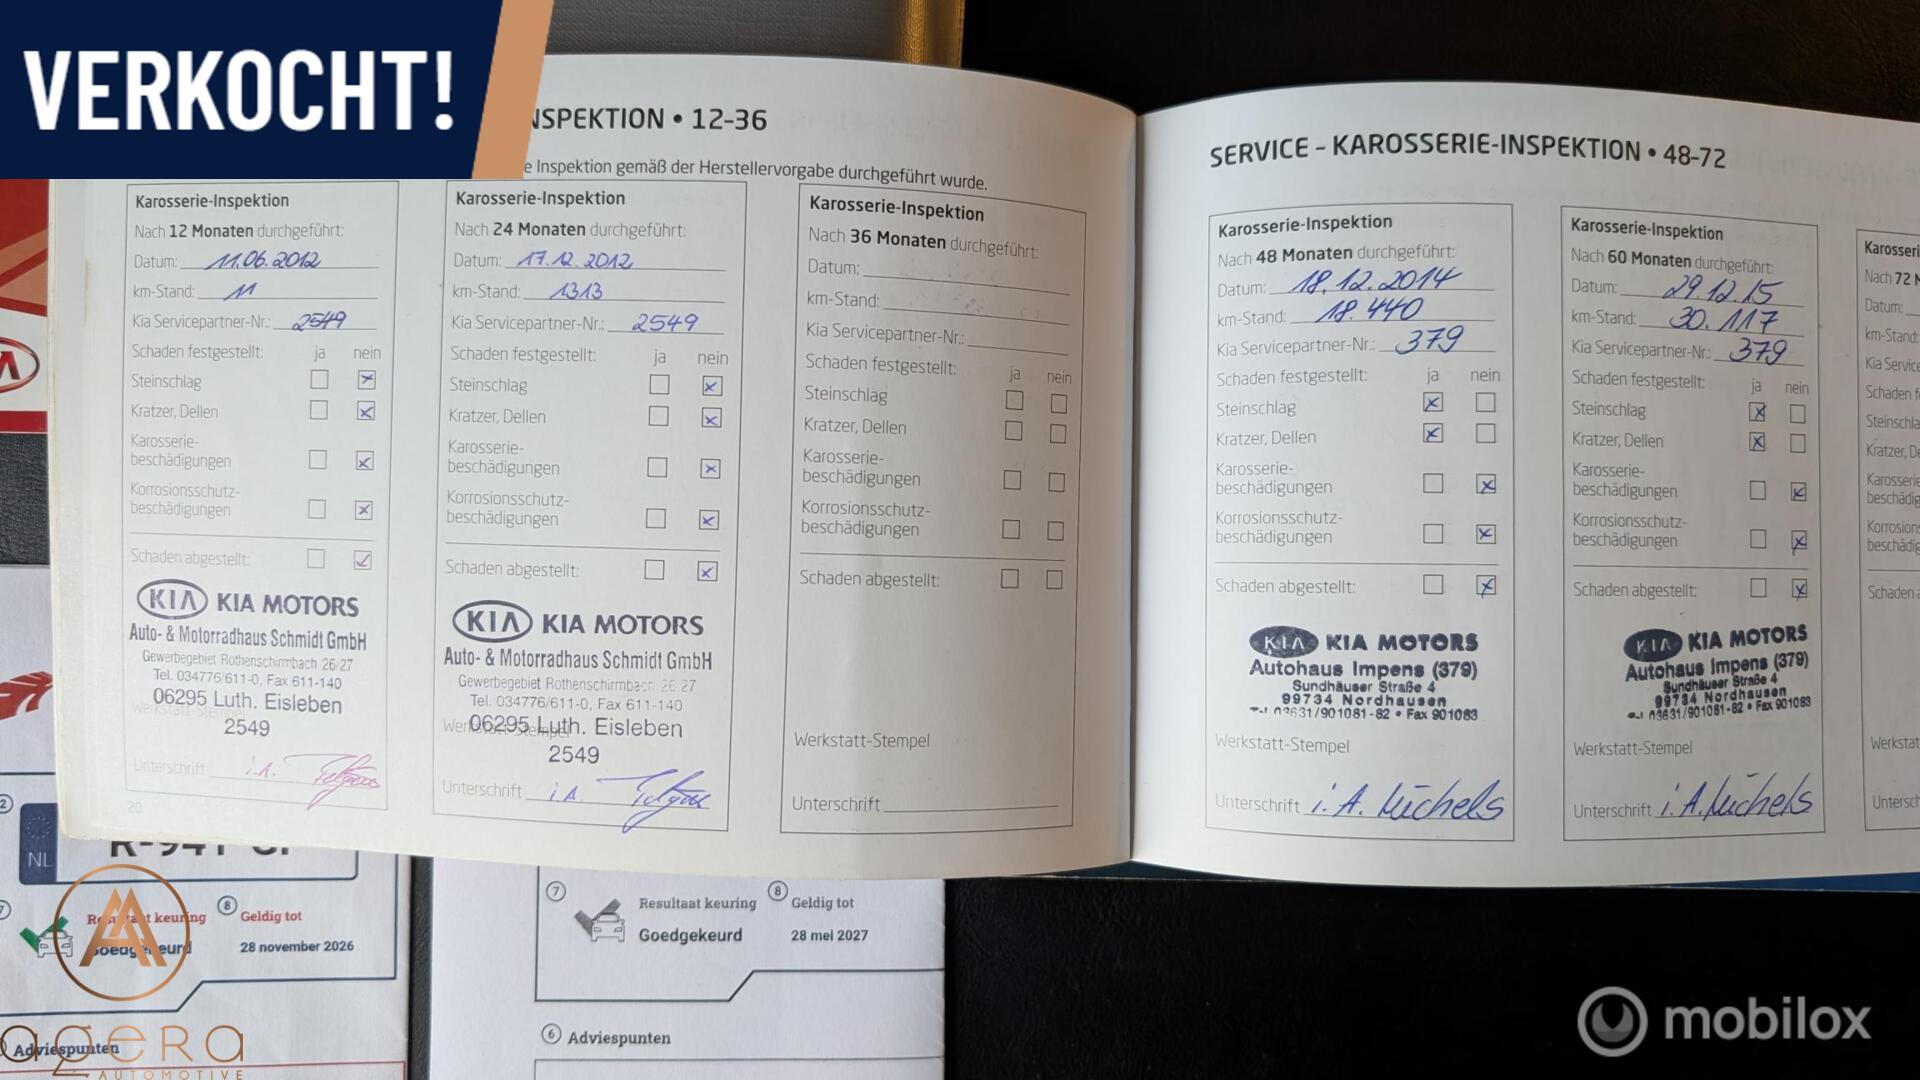 VERKOCHT!
NSPEKTION • 12-36
e Inspektion gemäß der Herstellervorgabe durchgeführt wurde.
Karosserie-Inspektion
Nach 12 Monaten durchgeführt:
Datum: 11.06.2012
km-Stand: 11
Kia Servicepartner-Nr.: 2549
Schaden festgestellt: ja nein
Steinschlag
Kratzer, Dellen
Karosserie-
beschädigungen
Korrosionsschutz-
beschädigungen
Schaden abgestellt:
KIA KIA MOTORS
Auto- & Motorradhaus Schmidt GmbH
Gewerbegebiet Rothenschirmbach 26/27
Tel. 034776/611-0, Fax 611-140
06295 Luth. Eisleben
Werkstatt-Stempel
2549
Unterschrift i.A.
20
Karosserie-Inspektion
Nach 24 Monaten durchgeführt:
Datum: 17.12.2012
km-Stand: 1313
Kia Servicepartner-Nr.: 2549
Schaden festgestellt: ja nein
Steinschlag
Kratzer, Dellen
Karosserie-
beschädigungen
Korrosionsschutz-
beschädigungen
Schaden abgestellt:
KIA KIA MOTORS
Auto- & Motorradhaus Schmidt GmbH
Gewerbegebiet Rothenschirmbach 26/27
Tel. 034776/611-0, Fax 611-140
06295 Luth. Eisleben
Werkstatt-Stempel
2549
Unterschrift i.A.
Karosserie-Inspektion
Nach 36 Monaten durchgeführt:
Datum:
km-Stand:
Kia Servicepartner-Nr.:
Schaden festgestellt: ja nein
Steinschlag
Kratzer, Dellen
Karosserie-
beschädigungen
Korrosionsschutz-
beschädigungen
Schaden abgestellt:
Werkstatt-Stempel
Unterschrift
SERVICE – KAROSSERIE-INSPEKTION • 48-72
Karosserie-Inspektion
Nach 48 Monaten durchgeführt:
Datum: 18.12.2014
km-Stand: 18.440
Kia Servicepartner-Nr.: 379
Schaden festgestellt: ja nein
Steinschlag
Kratzer, Dellen
Karosserie-
beschädigungen
Korrosionsschutz-
beschädigungen
Schaden abgestellt:
KIA KIA MOTORS
Autohaus Impens (379)
Sundhäuser Straße 4
99734 Nordhausen
03631/901081-82 • Fax 901083
Werkstatt-Stempel
Unterschrift i.A. Michels
Karosserie-Inspektion
Nach 60 Monaten durchgeführt:
Datum: 29.12.15
km-Stand: 30.117
Kia Servicepartner-Nr.: 379
Schaden festgestellt: ja nein
Steinschlag
Kratzer, Dellen
Karosserie-
beschädigungen
Korrosionsschutz-
beschädigungen
Schaden abgestellt:
KIA KIA MOTORS
Autohaus Impens (379)
Sundhäuser Straße 4
99734 Nordhausen
03631/901081-82 • Fax 901083
Werkstatt-Stempel
Unterschrift i.A. Michels
Karosseri
Nach 72 M
Datum:
km-Stand:
Kia Service
Schaden f
Steinschla
Kratzer, D
Karosserie
beschädig
Korrosion
beschädig
Schaden a
Werkstat
Untersch
2
NL
7
Resultaat keuring
Goedgekeurd
8 Geldig tot
28 november 2026
Adviespunten
7 Resultaat keuring
Goedgekeurd
8 Geldig tot
28 mei 2027
6 Adviespunten
agera
AUTOMOTIVE
mobilox